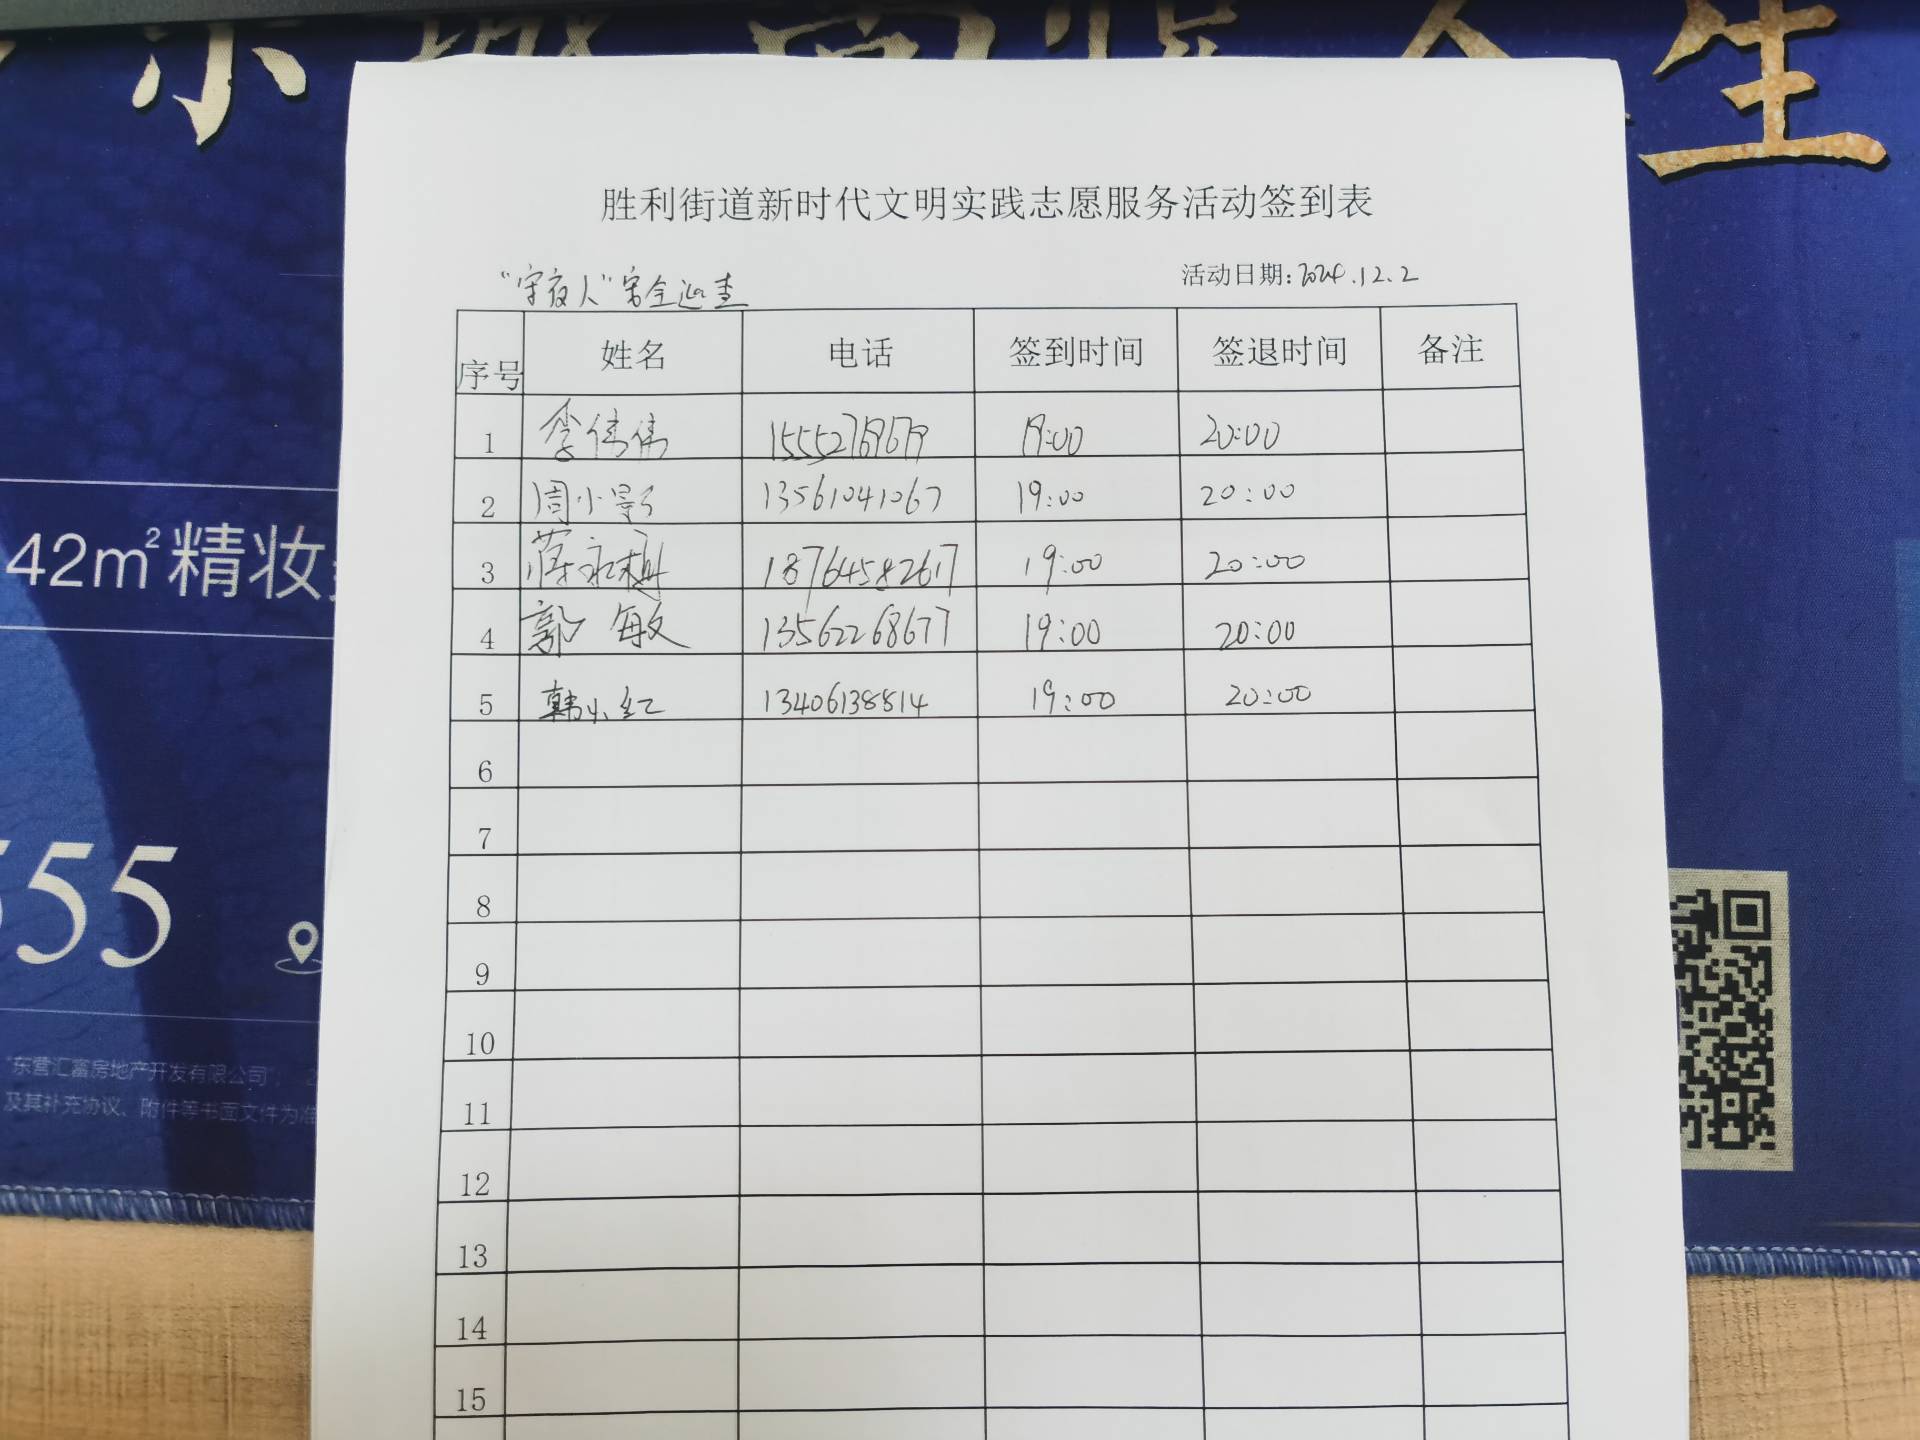 生
胜利街道新时代文明实践志愿服务活动签到表
"守夜人"安全巡查 活动日期:2024.12.2
序号 姓名 电话 签到时间 签退时间 备注
1 李伟伟 15552769679 19:00 20:00
2 周小 13561041067 19:00 20:00
3 永 18764582617 19:00 20:00
4 郭敏 13562268677 19:00 20:00
5 韩小红 13406138814 19:00 20:00
6
7
8
9
10
11
12
13
14
15
42m²精妆
555
"东营汇富房地产开发有限公司";
及其补充协议、附件等书面文件为准